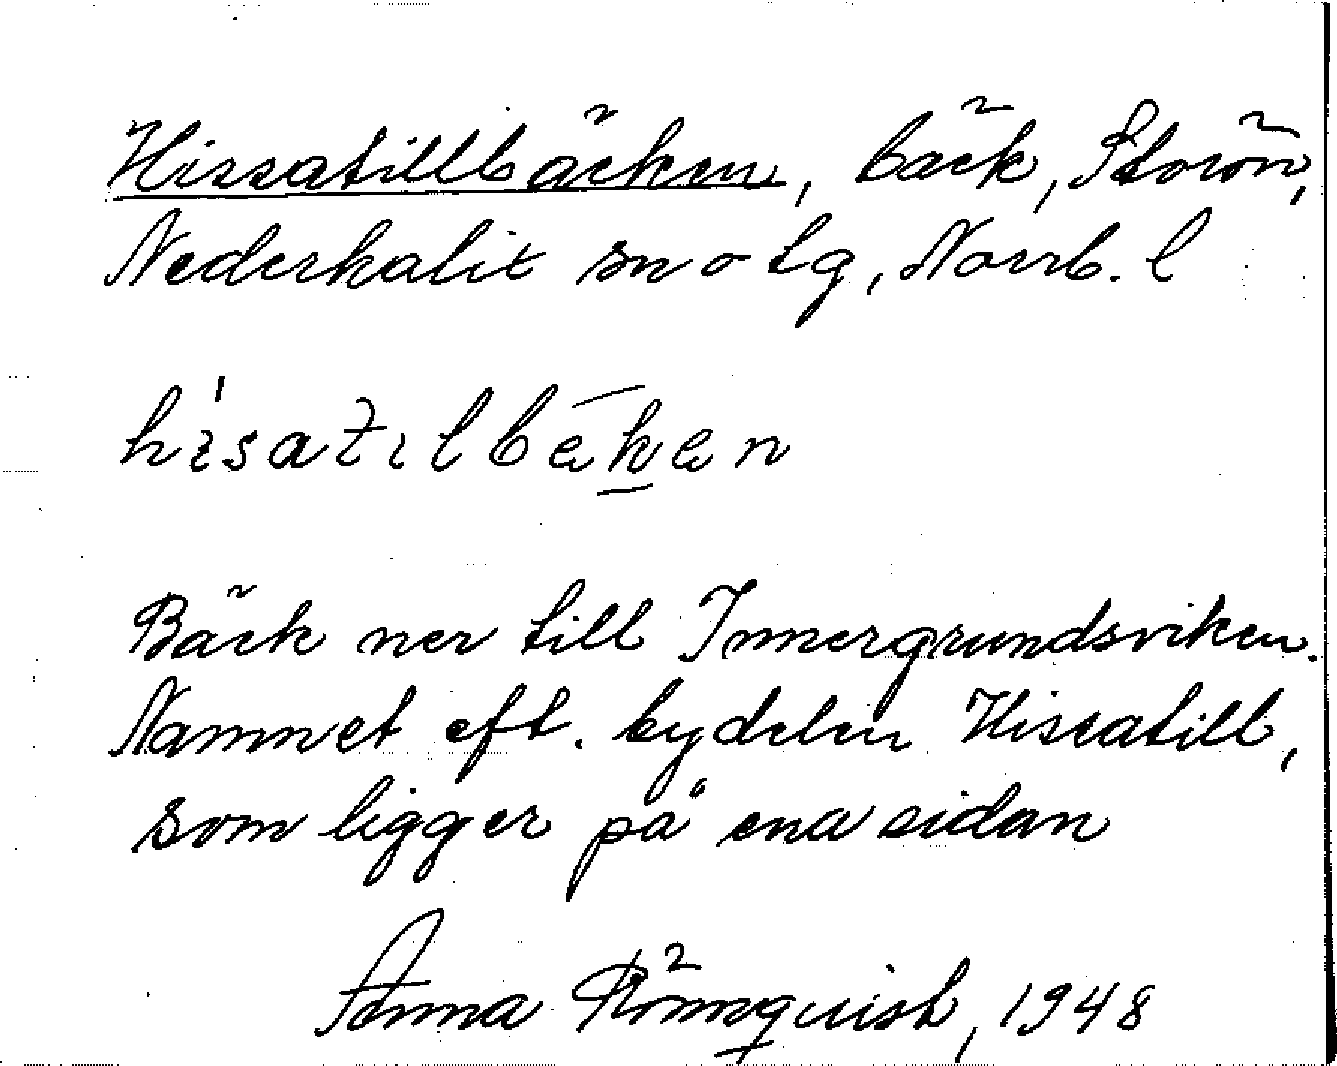 Hissatillbäcken, bäck, Storön,
Nederkalix sn o tg, Norrb. l
hisatilbäken
Bäck ner till Innergrundsviken.
Namnet eft. bydelen Hissatill,
som ligger på ena sidan
Anna Rönnquist, 1948